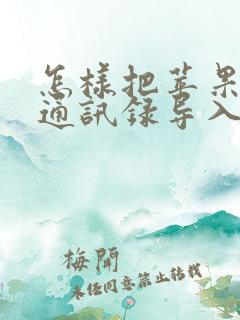 怎样把苹果
通訊録导入
梅開
未经同意禁止转载